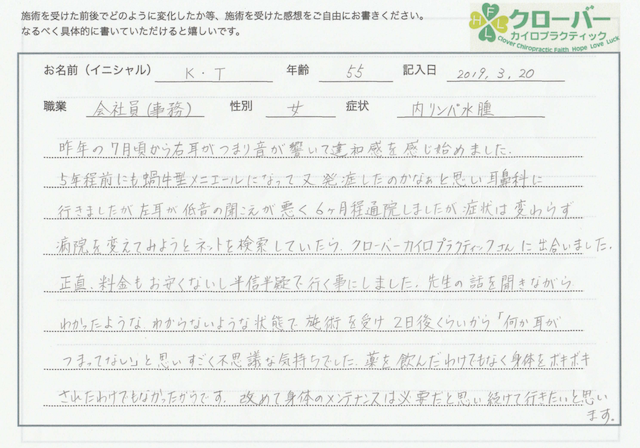 施術を受けた前後でどのように変化したか等、施術を受けた感想をご自由にお書きください。
なるべく具体的に書いていただけると嬉しいです。
HFLL
クローバー
カイロプラクティック
Clover Chiropractic Faith Hope Love Luck
お名前（イニシャル） K・T 年齢 55 記入日 2019. 3. 20
職業 会社員(事務) 性別 女 症状 内リンパ水腫
昨年の7月頃から右耳がつまり音が響いて違和感を感じ始めました.
5年程前にも蝸牛型メニエールになって又発症したのかなぁと思い耳鼻科に
行きましたが左耳が低音の聞こえが悪く6ヶ月程通院しましたが症状は変わらず
病院を変えてみようとネットを検索していたら、クローバーカイロプラクティックさんに出会いました.
正直、料金もお安くないし半信半疑で行く事にしました. 先生の話を聞きながら
わかったような わからないような状態で施術を受け 2日後くらいから「何か耳が
つまってない」と思いすごく不思議な気持ちでした. 薬を飲んだわけでもなく身体をボキボキ
されたわけでもなかったからです. 改めて身体のメンテナンスは必要だと思い続けて行きたいと思い
ます.